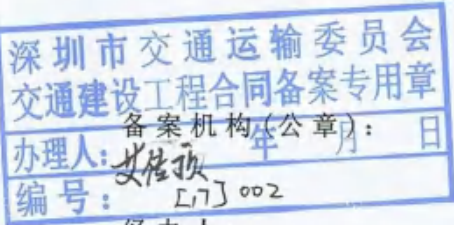 深圳市交通运输委员会
交通建设工程合同备案专用章
备案机构(公章):
办理人: 年 月 日
编号: [17] 002